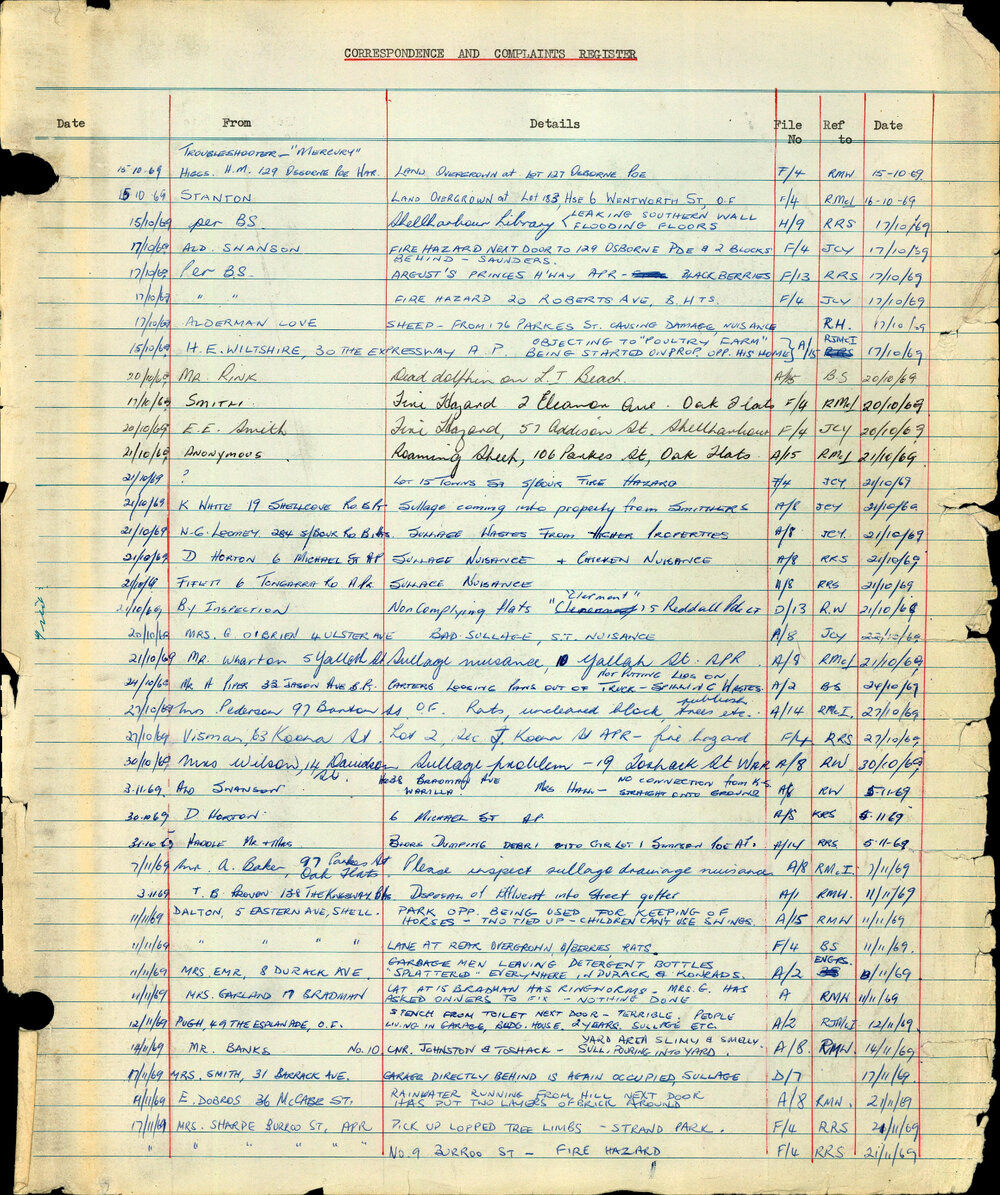 CORRESPONDENCE AND COMPLAINTS REGISTER
Date From Details File No Ref to Date
TROUBLESHOOTER - "MERCURY"
15-10-69 HIGGS. H.M. 129 OSBORNE PDE WAR. LAND OVERGROWN at LOT 127 OSBORNE PDE F/4 RMW 15-10-69
15-10-69 STANTON LAND OVERGROWN at Lot 183, HSE 6 WENTWORTH ST, O.F F/4 RMcI 16-10-69
15/10/69 per BS Shellharbour Library LEAKING SOUTHERN WALL H/9 RRS 17/10/69
FLOODING FLOORS
17/10/69 ALD. SWANSON FIRE HAZARD NEXT DOOR TO 129 OSBORNE PDE & 2 BLOCKS F/4 JCY 17/10/69
BEHIND - SAUNDERS.
17/10/69 Per BS ARGUST'S PRINCES H'WAY APR - BLACKBERRIES F/13 RRS 17/10/69
17/10/69 " " FIRE HAZARD 20 ROBERTS AVE, B. HTS. F/4 JCY 17/10/69
17/10/69 ALDERMAN LOVE SHEEP - FROM 176 PARKES ST. CAUSING DAMAGE, NUISANCE R.H. 17/10/69
15/10/69 H.E. WILTSHIRE, 30 THE EXPRESSWAY A.P. OBJECTING TO "POULTRY FARM" A/15 RJMcI 17/10/69
BEING STARTED ON PROP. OPP. HIS HOME RRS
20/10/69 Mr. Rink Dead dolphin on L.T Beach. A/15 B.S 20/10/69
17/10/69 SMITH. Fire Hazard 2 Eleanor Ave. Oak Flats F/4 RMcI 20/10/69
20/10/69 E.E. Smith Fire Hazard, 57 Addison St. Shellharbour F/4 JCY 20/10/69
21/10/69 ANONYMOUS Roaming Sheep, 106 Parkes St, Oak Flats. A/15 RMcI 21/10/69
21/10/69 ? LOT 15 TOWNS ST S/BOUR FIRE HAZARD F/4 JCY 21/10/69
21/10/69 K WHITE 19 SHELLCOVE RD. B.PT Sullage coming into property from SMITHERS A/8 JCY 21/10/69
21/10/69 N.G. LOONEY 284 S/BOUR RD B. Hts. SULLAGE WASTES FROM HIGHER PROPERTIES A/8 JCY. 21/10/69
21/10/69 D HORTON 6 MICHAEL ST AP SULLAGE NUISANCE + CHICKEN NUISANCE A/8 RRS 21/10/69
21/10/69 6 TONGARRA RD A.PK. SULLAGE NUISANCE A/8 RRS 21/10/69
21/10/69 BY INSPECTION Non Complying flats "Clermont" 75 Reddall Pde LT D/13 R.W 21/10/69
20/10/69 MRS. G. O'BRIEN 4 ULSTER AVE BAD SULLAGE, S.T. NUISANCE A/8 JCY
21/10/69 Mr. Wharton 5 Yallah St Sullage nuisance, 10 Yallah St. APR. A/8 RMcI 21/10/69
NOT PUTTING LIDS ON
24/10/69 Mr A PIPER 32 JASON AVE B.PT. CARTERS LOOSING PANS OUT OF TRUCK - SPILLING WASTES. A/2 BS 24/10/69
27/10/69 Mrs Pederson 97 Banton St O.F. Rats, uncleared block, rubbish, trees etc. A/14 RMcI. 27/10/69
27/10/69 Visman, 63 Koona St. Lot 2, Sec J Koona St APR - fire hazard F/4 RRS 27/10/69
30/10/69 Mrs Wilson, 14 Davidson St. Sullage problem - 19 Toshack St WAR A/8 RW 30/10/69
3.11.69 ALD SWANSON. No 38 BRADMAN AVE WARILLA. MRS HALL - NO CONNECTION from K.S. STRAIGHT ONTO GROUND A/8 RW 5-11-69
30-10-69 D HORTON. 6 MICHAEL ST AP A/8 RRS 5-11-69
31-10-69 HADDLE MR + MRS BLDRS DUMPING DEBRI ONTO CNR LOT 1 SIMPSON PDE A.F. A/14 RRS 5-11-69
7/11/69 Mr. A. Baker, 97 Parkes St Oak Flats. Please inspect sullage drainage nuisance A/8 RMcI. 7/11/69
3.11.69 T. B 138 THE KINGSWAY Disposal of Effluent into Street gutter A/1 RMW. 11/11/69
11/11/69 DALTON, 5 EASTERN AVE, SHELL. PARK OPP. BEING USED FOR KEEPING OF
HORSES - TWO TIED UP - CHILDREN CAN'T USE SWINGS. A/15 RMW 11/11/69
11/11/69 " " " " LANE AT REAR OVERGROWN B/BERRIES RATS. F/4 BS 11/11/69.
11/11/69 MRS EMR, 8 DURACK AVE. GARBAGE MEN LEAVING DETERGENT BOTTLES
"SPLATTERED" EVERYWHERE IN DURACK & KONRADS. A/2 ENGRS. 11/11/69
11/11/69 MRS. GARLAND 17 BRADMAN CAT AT 15 BRADMAN HAS RINGWORMS - MRS. G. HAS
ASKED OWNERS TO FIX - NOTHING DONE A RMW 11/11/69
12/11/69 PUGH, 49 THE ESPLANADE, O.F. STENCH FROM TOILET NEXT DOOR - TERRIBLE. PEOPLE
LIVING IN GARAGE, BLDG. HOUSE. 2 YEARS. SULLAGE ETC. A/2 RJMcI 12/11/69.
14/11/69 MR. BANKS No. 10 CNR. JOHNSTON & TOSHACK - YARD AREA SLIMY & SMELLY.
SULL. POURING INTO YARD. A/8. RMW. 14/11/69
17/11/69 MRS. SMITH, 31 BARRACK AVE. GARAGE DIRECTLY BEHIND IS AGAIN OCCUPIED, SULLAGE D/7 17/11/69.
19/11/69 E. DOBROS 36 McCABE ST. RAINWATER RUNNING FROM HILL NEXT DOOR
HAS PUT TWO LAYERS OF BRICK AROUND A/8 RMW. 21/11/69
17/11/69 MRS. SHARPE BURROO ST, APR PICK UP LOPPED TREE LIMBS - STRAND PARK. F/4 RRS 21/11/69
" " " " " NO. 9 BURROO ST - FIRE HAZARD F/4 RRS 21/11/69